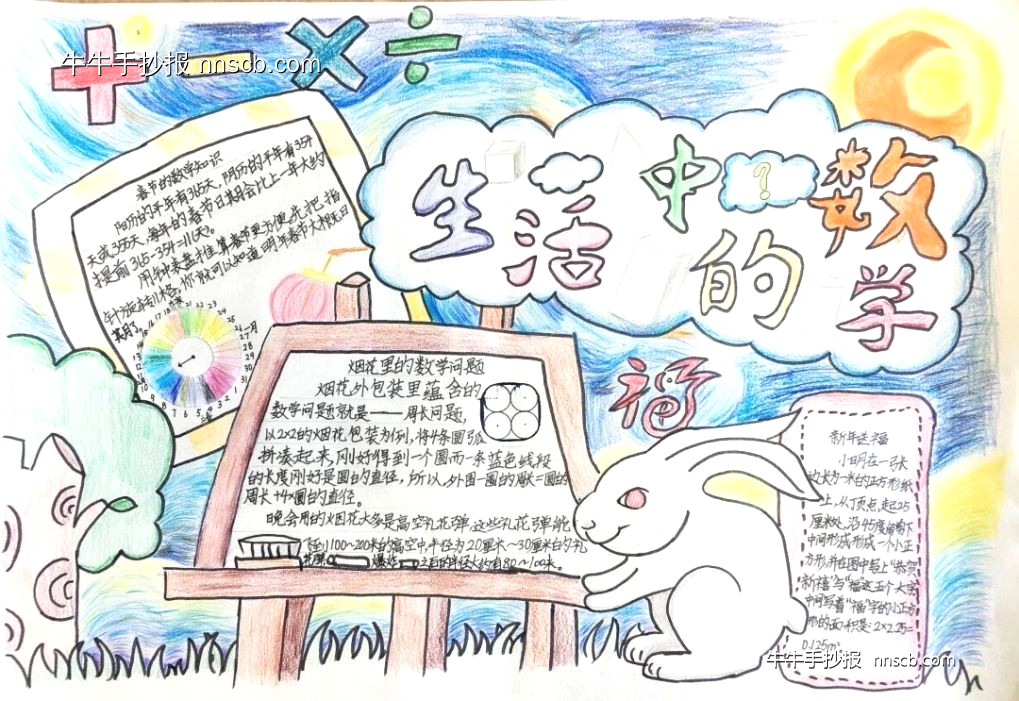 牛牛手抄报 nnscb.com
生活中的数学
?
春节的数学知识
阳历的平年有365天，阴历的平年有354
天或355天，每年的春节日期会比上一年大约
提前365-354=11(天)。
用钟表盘推算春节更方便，先把指
针方
你就可以知道明年春节大概在
某月了。
一月
烟花里的数学问题
烟花外包装里蕴含的
数学问题就是——周长问题，
以2×2的烟花包装为例，将4条圆弧
拼凑起来，刚好得到一个圆而一条蓝色线段
的长度刚好是圆的直径，所以，外围一圈的周长=圆的
周长+4×圆的直径。
晚会用的烟花大多是高空礼花弹，这些礼花弹能
飞到1100~200米的高空中，半径为20厘米~30厘米的礼
花弹爆炸之后的半径大约有80~100米。
福
新年送福
小明在一张
边长为一米的正方形纸
上，从顶点起25
厘米处，沿45度角剪下
中间形成形成一个小正
方形，并在图中写上"恭贺
新禧"与"福"这五个大字
中间写着"福"字的小正方
形的面积是：2×2.25=
0.125m²
牛牛手抄报 nnscb.com